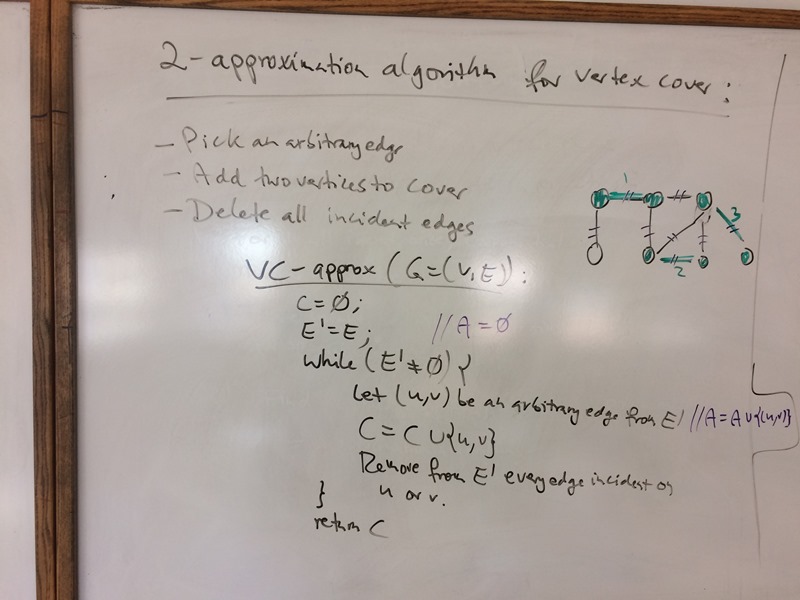 2-approximation algorithm for vertex cover:
- Pick an arbitrary edge
- Add two vertices to cover
- Delete all incident edges
1
3
2
VC-approx (G=(V,E)):
C=∅;
E'=E; //A=∅
while (E'≠∅) {
Let (u,v) be an arbitrary edge from E' //A=A∪{(u,v)}
C=C∪{u,v}
Remove from E' every edge incident on
u or v.
}
return C